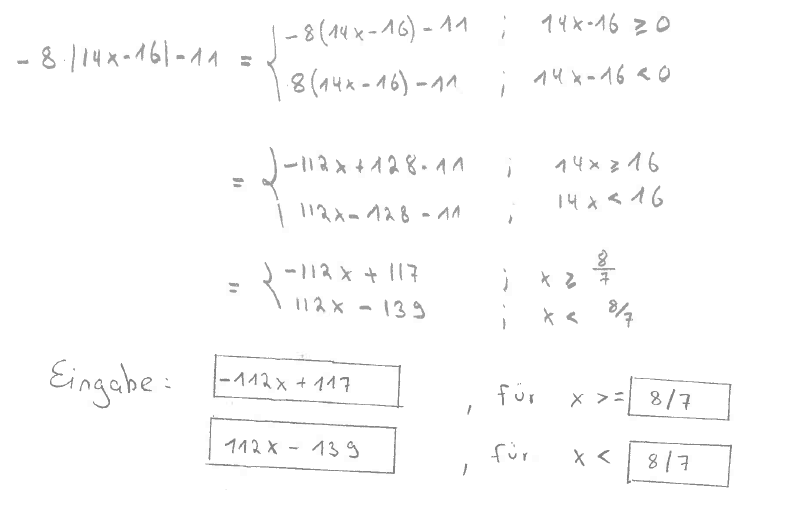 -8·|14x-16|-11 = { -8(14x-16)-11 ; 14x-16 ≥ 0
8(14x-16)-11 ; 14x-16 < 0
= { -112x+128-11 ; 14x ≥ 16
112x-128-11 ; 14x < 16
= { -112x + 117 ; x ≥ 8/7
112x - 139 ; x < 8/7
Eingabe: -112x + 117 , für x >= 8/7
112x - 139 , für x < 8/7